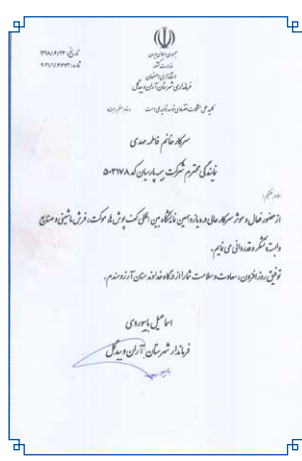 جمهوری اسلامی ایران
وزارت کشور
استانداری اصفهان
فرمانداری شهرستان آران و بیدگل
تاریخ: ۱۳۹۸/۶/۲۴
شماره: ۲۰۲۱/۱/۶۶۷۳
کلید حل مشکلات اقتصادی توسعه تولید ملی است
سرکار خانم فاطمه صمدی
نمایندگی محترم شرکت بیمه پارسیان کد ۵۰۳۱۷۸
سلام علیکم؛
از حضور فعال و موثر سرکار عالی در یازدهمین نمایشگاه بین المللی کف پوش ها، موکت، فرش ماشینی و صنایع
وابسته تشکر و قدردانی می نمایم.
توفیق روز افزون، سعادت و سلامت شما را از درگاه خداوند منان آرزومندم.
اسماعیل بایبوردی
فرماندار شهرستان آران و بیدگل